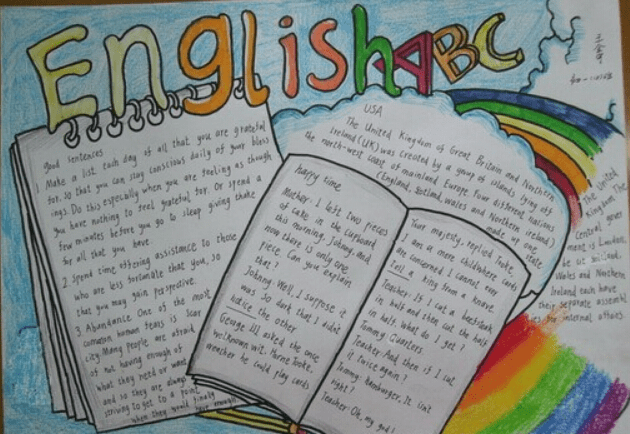 English ABC
good sentences
1. Make a list each day of all that you are grateful
for. so that you can stay conscious daily of your bless
ings. Do this especially when you are feeling as though
you have nothing to feel grateful for. Or spend a
few minutes before you go to sleep giving thanks
for all that you have.
2. Spend time offering assistance to those
who are less fortunate that you, so
that you may gain perspective.
3. Abundance One of the most
common human fears is scar
city Many people are afraid
of not having enough of
what they need or want
and so they are always
striving to get to a point
when they would finally
have enough
USA
The United Kingdom of Great Britain and Northern
Ireland (UK) was created by a group of islands lying off
the north-west coast of mainland Europe. Four different nations
(England, Scotland, wales and Northern ireland)
made up one
state
The United
Kingdom The
Central gover
ment is London,
Wales and Northern
Ireland each have
their separate assembl
ies for internal affairs.
happy time
Mother: I left two pieces
of cake in the cupboard
this morning, Johnny, and
now there is only one
piece. Can you explain
that?
Johnny: Well, I suppose it
was so dark that I didn't
notice the other
George III, asked the once
well known wit. Horne Tooke,
weather he could play cards
Your majesty, replied Tooke,
I am a mere child where cards
are concerned I cannot even
tell a king from a knave
Teacher: If I cut a beefsteak
in half and then cut the half
in half. What do I get?
Tommy: Quarters.
Teacher: And then if I cut
it twice again?
Tommy: Hamburger, It isn't
right!
Teacher: Oh, my god!